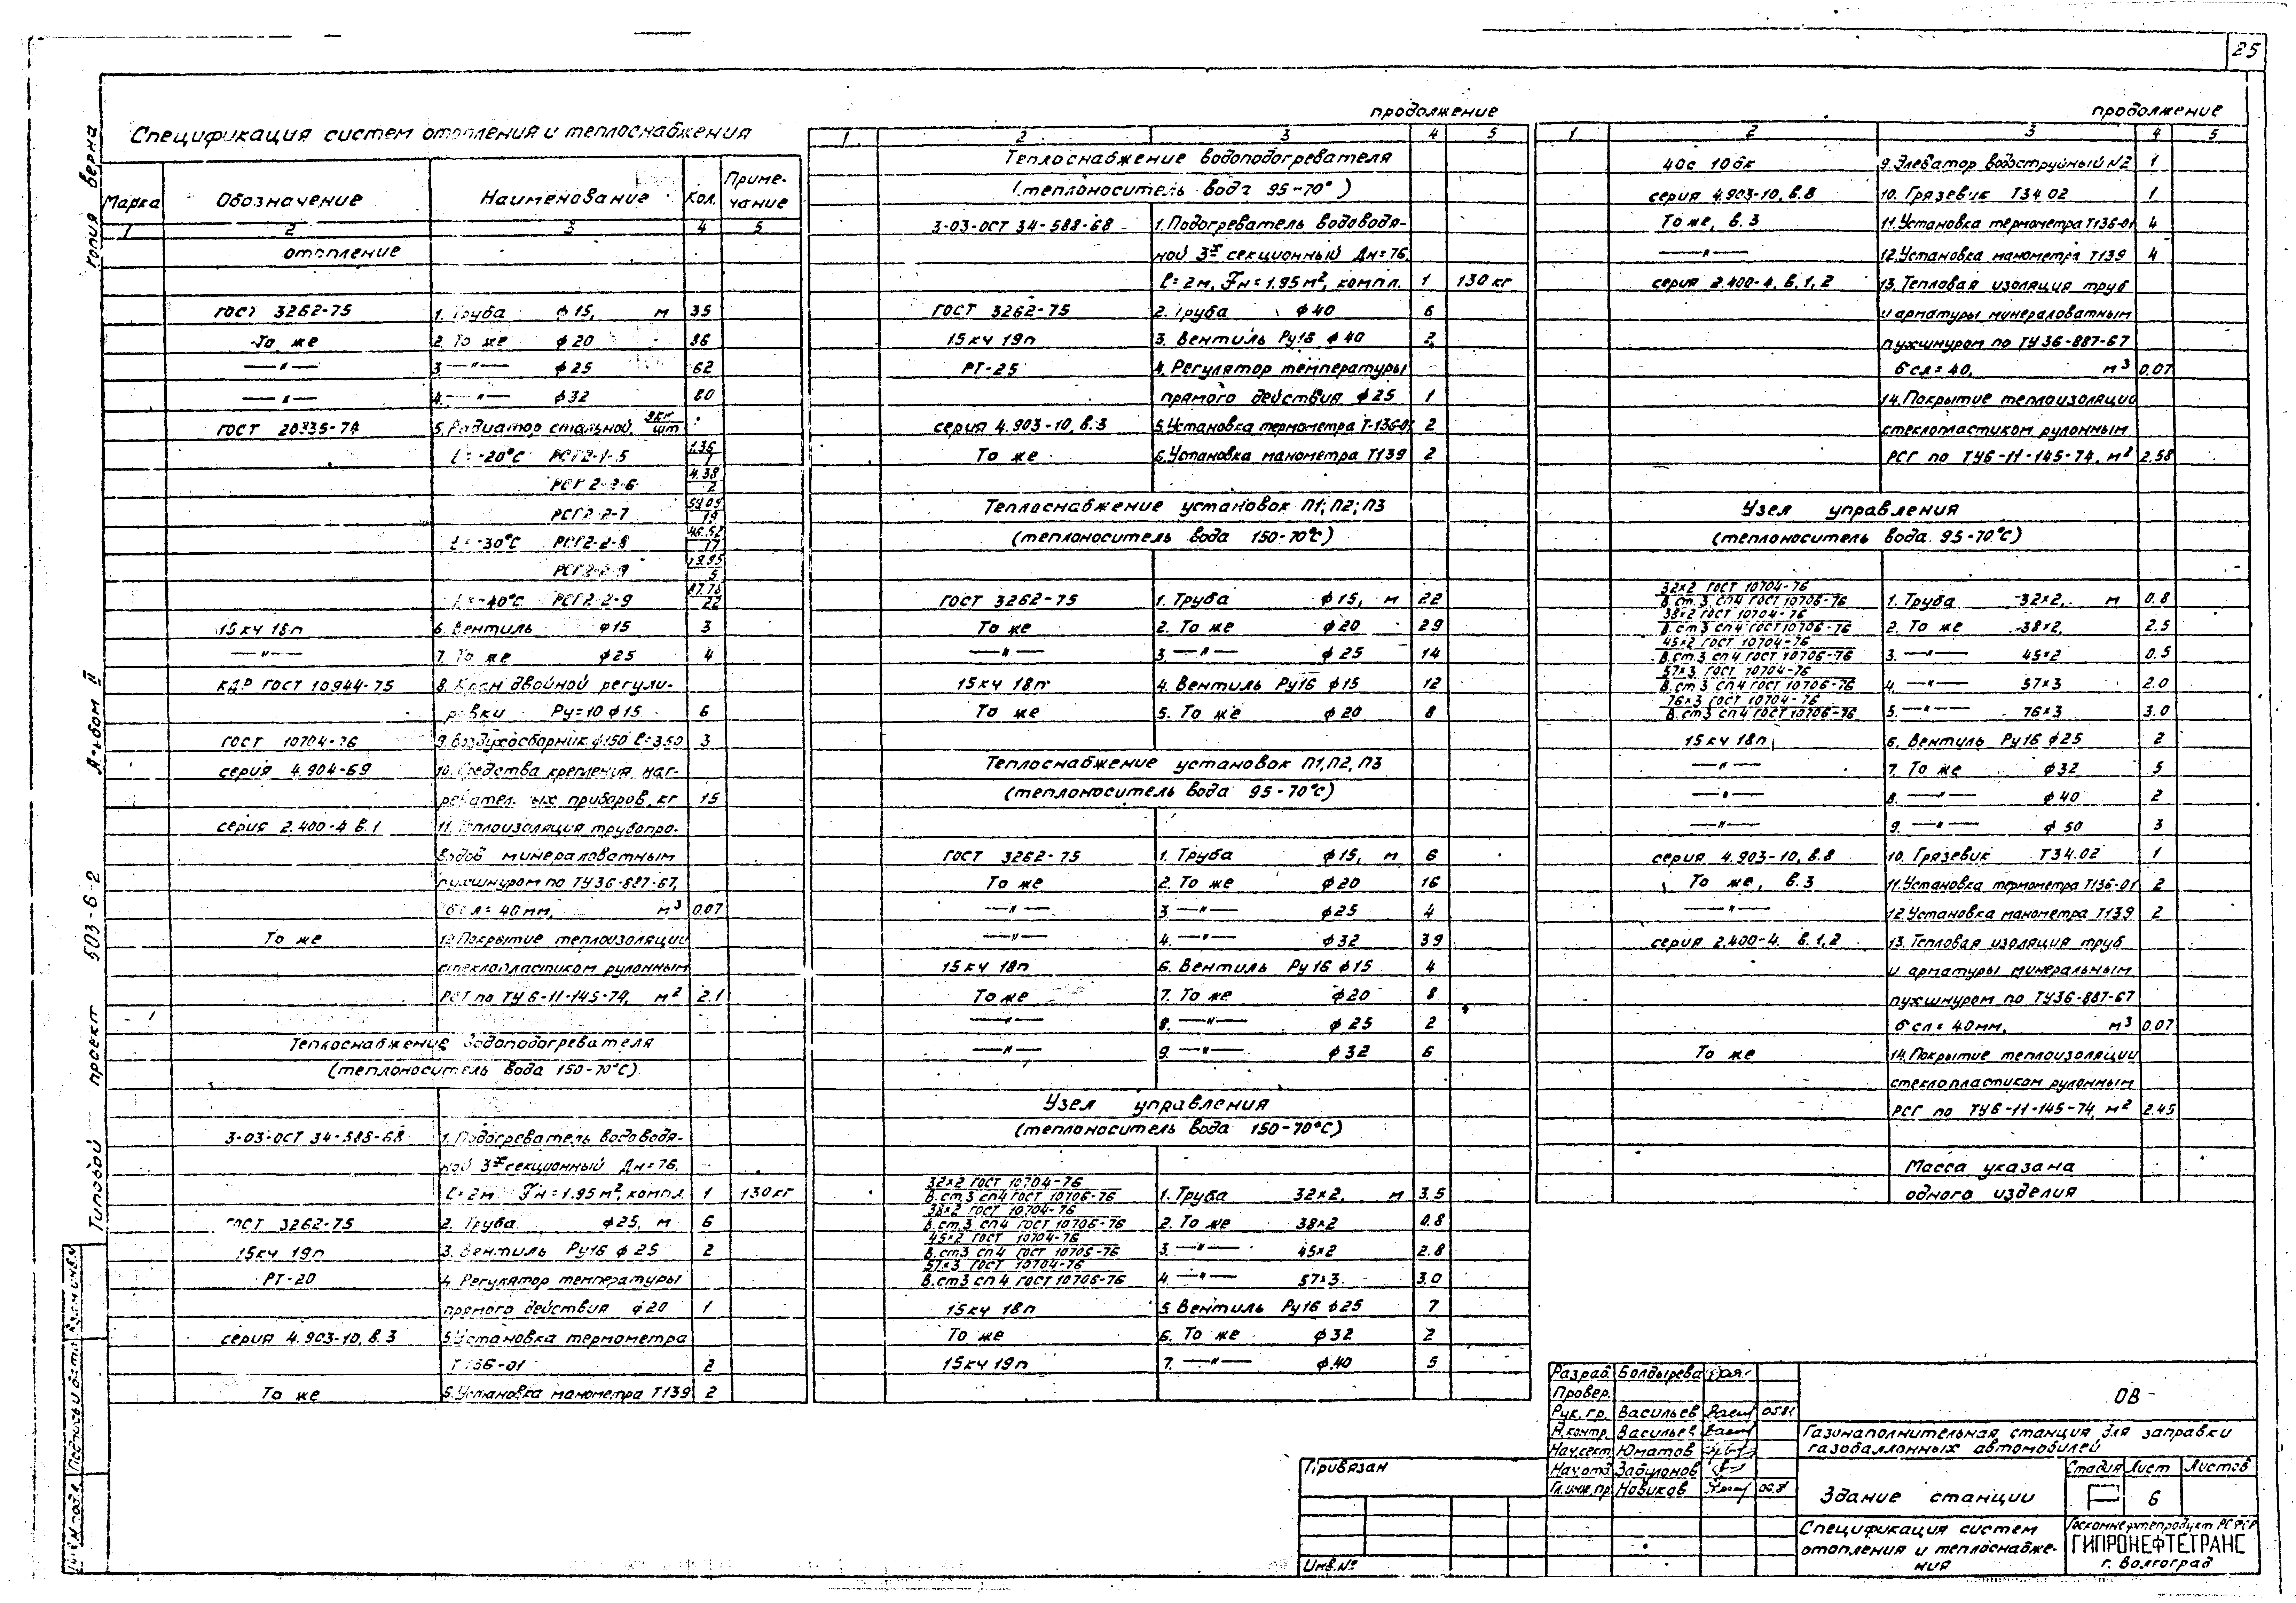 25
копия верна
Альбом II
503-6-2
Типовой проект
Спецификация систем отопления и теплоснабжения
Марка | Обозначение | Наименование | Кол. | Приме-чание
1 | 2 | 3 | 4 | 5
отопление
ГОСТ 3262-75 | 1. Труба ф 15, м | 35
То же | 2. То же ф 20 | 86
—"— | 3 —"— ф 25 | 62
—"— | 4. —"— ф 32 | 80
ГОСТ 20335-74 | 5. Радиатор стальной, экм/шт
t = -20°С РСГ2-1-5 | 1.36/1
РСГ 2-2-6 | 4.38/2
РСГ2 2-7 | 19
t = -30°С РСГ2-2-8 | 17
РСГ2-2-9 | 5
t = -40°С РСГ2-2-9 | 87.78/22
15кч 18п | 6. Вентиль ф15 | 3
—"— | 7. То же ф25 | 4
КДР ГОСТ 10944-75 | 8. Кран двойной регули-
ровки Ру=10 ф15 | 6
ГОСТ 10704-76 | 9. Воздухосборник ф150 ℓ=350 | 3
серия 4.904-69 | 10. Средства крепления наг-
ревательных приборов, кг | 15
серия 2.400-4 в.1 | 11. Теплоизоляция трубопро-
водов минераловатным
пухшнуром по ТУ36-887-67,
б сл = 40мм, м³ | 0.07
То же | 12 Покрытие теплоизоляции
стеклопластиком рулонным
РСТ по ТУ6-11-145-74, м² | 2.1
Теплоснабжение водоподогревателя
(теплоноситель вода 150-70°С)
3-03-ОСТ 34-588-68 | 1. Подогреватель водоводя-
ной 3х секционный Дн=76,
ℓ=2м Fн=1.95м², компл. | 1 | 130кг
ГОСТ 3262-75 | 2. Труба ф25, м | 6
15кч 19п | 3. Вентиль Ру16 ф 25 | 2
РТ-20 | 4 Регулятор температуры
прямого действия ф20 | 1
серия 4.903-10, в.3 | 5 Установка термометра
Т136-01 | 2
То же | 6. Установка манометра Т139 | 2
продолжение
1 | 2 | 3 | 4 | 5
Теплоснабжение водоподогревателя
(теплоноситель вода 95-70°)
3-03-ОСТ 34-588-68 | 1. Подогреватель водоводя-
ной 3х секционный Дн=76
ℓ=2м, Fн=1.95м², компл. | 1 | 130кг
ГОСТ 3262-75 | 2. Труба ф 40 | 6
15кч 19п | 3. Вентиль Ру16 ф 40 | 2
РТ-25 | 4. Регулятор температуры
прямого действия ф 25 | 1
серия 4.903-10, в.3 | 5. Установка термометра Т-136-01 | 2
То же | 6. Установка манометра Т139 | 2
Теплоснабжение установок П1; П2; П3
(теплоноситель вода 150-70°С)
ГОСТ 3262-75 | 1. Труба ф 15, м | 22
То же | 2. То же ф 20 | 29
—"— | 3. —"— ф 25 | 14
15кч 18п | 4. Вентиль Ру16 ф15 | 12
То же | 5. То же ф 20 | 8
Теплоснабжение установок П1, П2, П3
(теплоноситель вода 95-70°С)
ГОСТ 3262-75 | 1. Труба ф15, м | 6
То же | 2. То же ф20 | 16
—"— | 3. —"— ф25 | 4
—"— | 4. —"— ф32 | 39
15кч 18п | 6. Вентиль Ру16 ф15 | 4
То же | 7. То же ф20 | 8
—"— | 8. —"— ф 25 | 2
—"— | 9. —"— ф 32 | 6
Узел управления
(теплоноситель вода 150-70°С)
32×2 ГОСТ 10704-76
В.ст.3 сп4 ГОСТ 10706-76 | 1. Труба 32×2, м | 3.5
38×2 ГОСТ 10704-76
В.ст.3 сп4 ГОСТ 10706-76 | 2. То же 38×2 | 0.8
45×2 ГОСТ 10704-76
В.ст3 сп4 ГОСТ 10706-76 | 3. —"— 45×2 | 2.8
57×3 ГОСТ 10704-76
В.ст3 сп4 ГОСТ 10706-76 | 4. —"— 57×3 | 3.0
15кч 18п | 5. Вентиль Ру16 ф25 | 7
То же | 6. То же ф32 | 2
15кч 19п | 7. —"— ф40 | 5
продолжение
1 | 2 | 3 | 4 | 5
40с 10бк | 9. Элеватор водоструйный №2 | 1
серия 4.903-10, в.8 | 10. Грязевик Т34 02 | 1
То же, в.3 | 11. Установка термометра Т136-01 | 4
—"— | 12. Установка манометра Т139 | 4
серия 2.400-4, в.1,2 | 13. Тепловая изоляция труб
и арматуры минераловатным
пухшнуром по ТУ36-887-67
б сл = 40, м³ | 0.07
14. Покрытие теплоизоляции
стеклопластиком рулонным
РСГ по ТУ6-11-145-74, м² | 2.58
Узел управления
(теплоноситель вода 95-70°С)
32×2 ГОСТ 10704-76
В.ст.3 сп4 ГОСТ 10706-76 | 1. Труба 32×2, м | 0.8
38×2 ГОСТ 10704-76
В.ст3 сп4 ГОСТ 10706-76 | 2. То же 38×2, | 2.5
45×2 ГОСТ 10704-76
В.ст.3 сп4 ГОСТ 10706-76 | 3. —"— 45×2 | 0.5
57×3 ГОСТ 10704-76
В.ст3 сп4 ГОСТ 10706-76 | 4. —"— 57×3 | 2.0
76×3 ГОСТ 10704-76
В.ст3 сп4 ГОСТ 10706-76 | 5. —"— 76×3 | 3.0
15кч 18п | 6. Вентиль Ру16 ф25 | 2
—"— | 7. То же ф32 | 5
—"— | 8. —"— ф40 | 2
—"— | 9. —"— ф 50 | 3
серия 4.903-10, в.8 | 10. Грязевик Т34.02 | 1
То же, в.3 | 11. Установка термометра Т136-01 | 2
—"— | 12. Установка манометра Т139 | 2
серия 2.400-4. в.1,2 | 13. Тепловая изоляция труб
и арматуры минеральным
пухшнуром по ТУ36-887-67
б сл = 40мм, м³ | 0.07
То же | 14. Покрытие теплоизоляции
стеклопластиком рулонным
РСГ по ТУ6-11-145-74, м² | 2.45
Масса указана
одного изделия
Разраб. Болдырева
Провер.
Рук. гр. Васильев 05.81
Н.контр. Васильев
Нач.сект. Юматов
Нач.отд Забулонов
Гл.инж.пр Новиков
Привязан
Инв.№
ОВ
Газонаполнительная станция для заправки
газобаллонных автомобилей
Здание станции
Стадия Лист Листов
Р 6
Спецификация систем
отопления и теплоснабже-
ния
Госкомнефтепродукт РСФСР
ГИПРОНЕФТЕТРАНС
г. Волгоград
Инв.№ подл. Подпись и дата Взам.инв.№